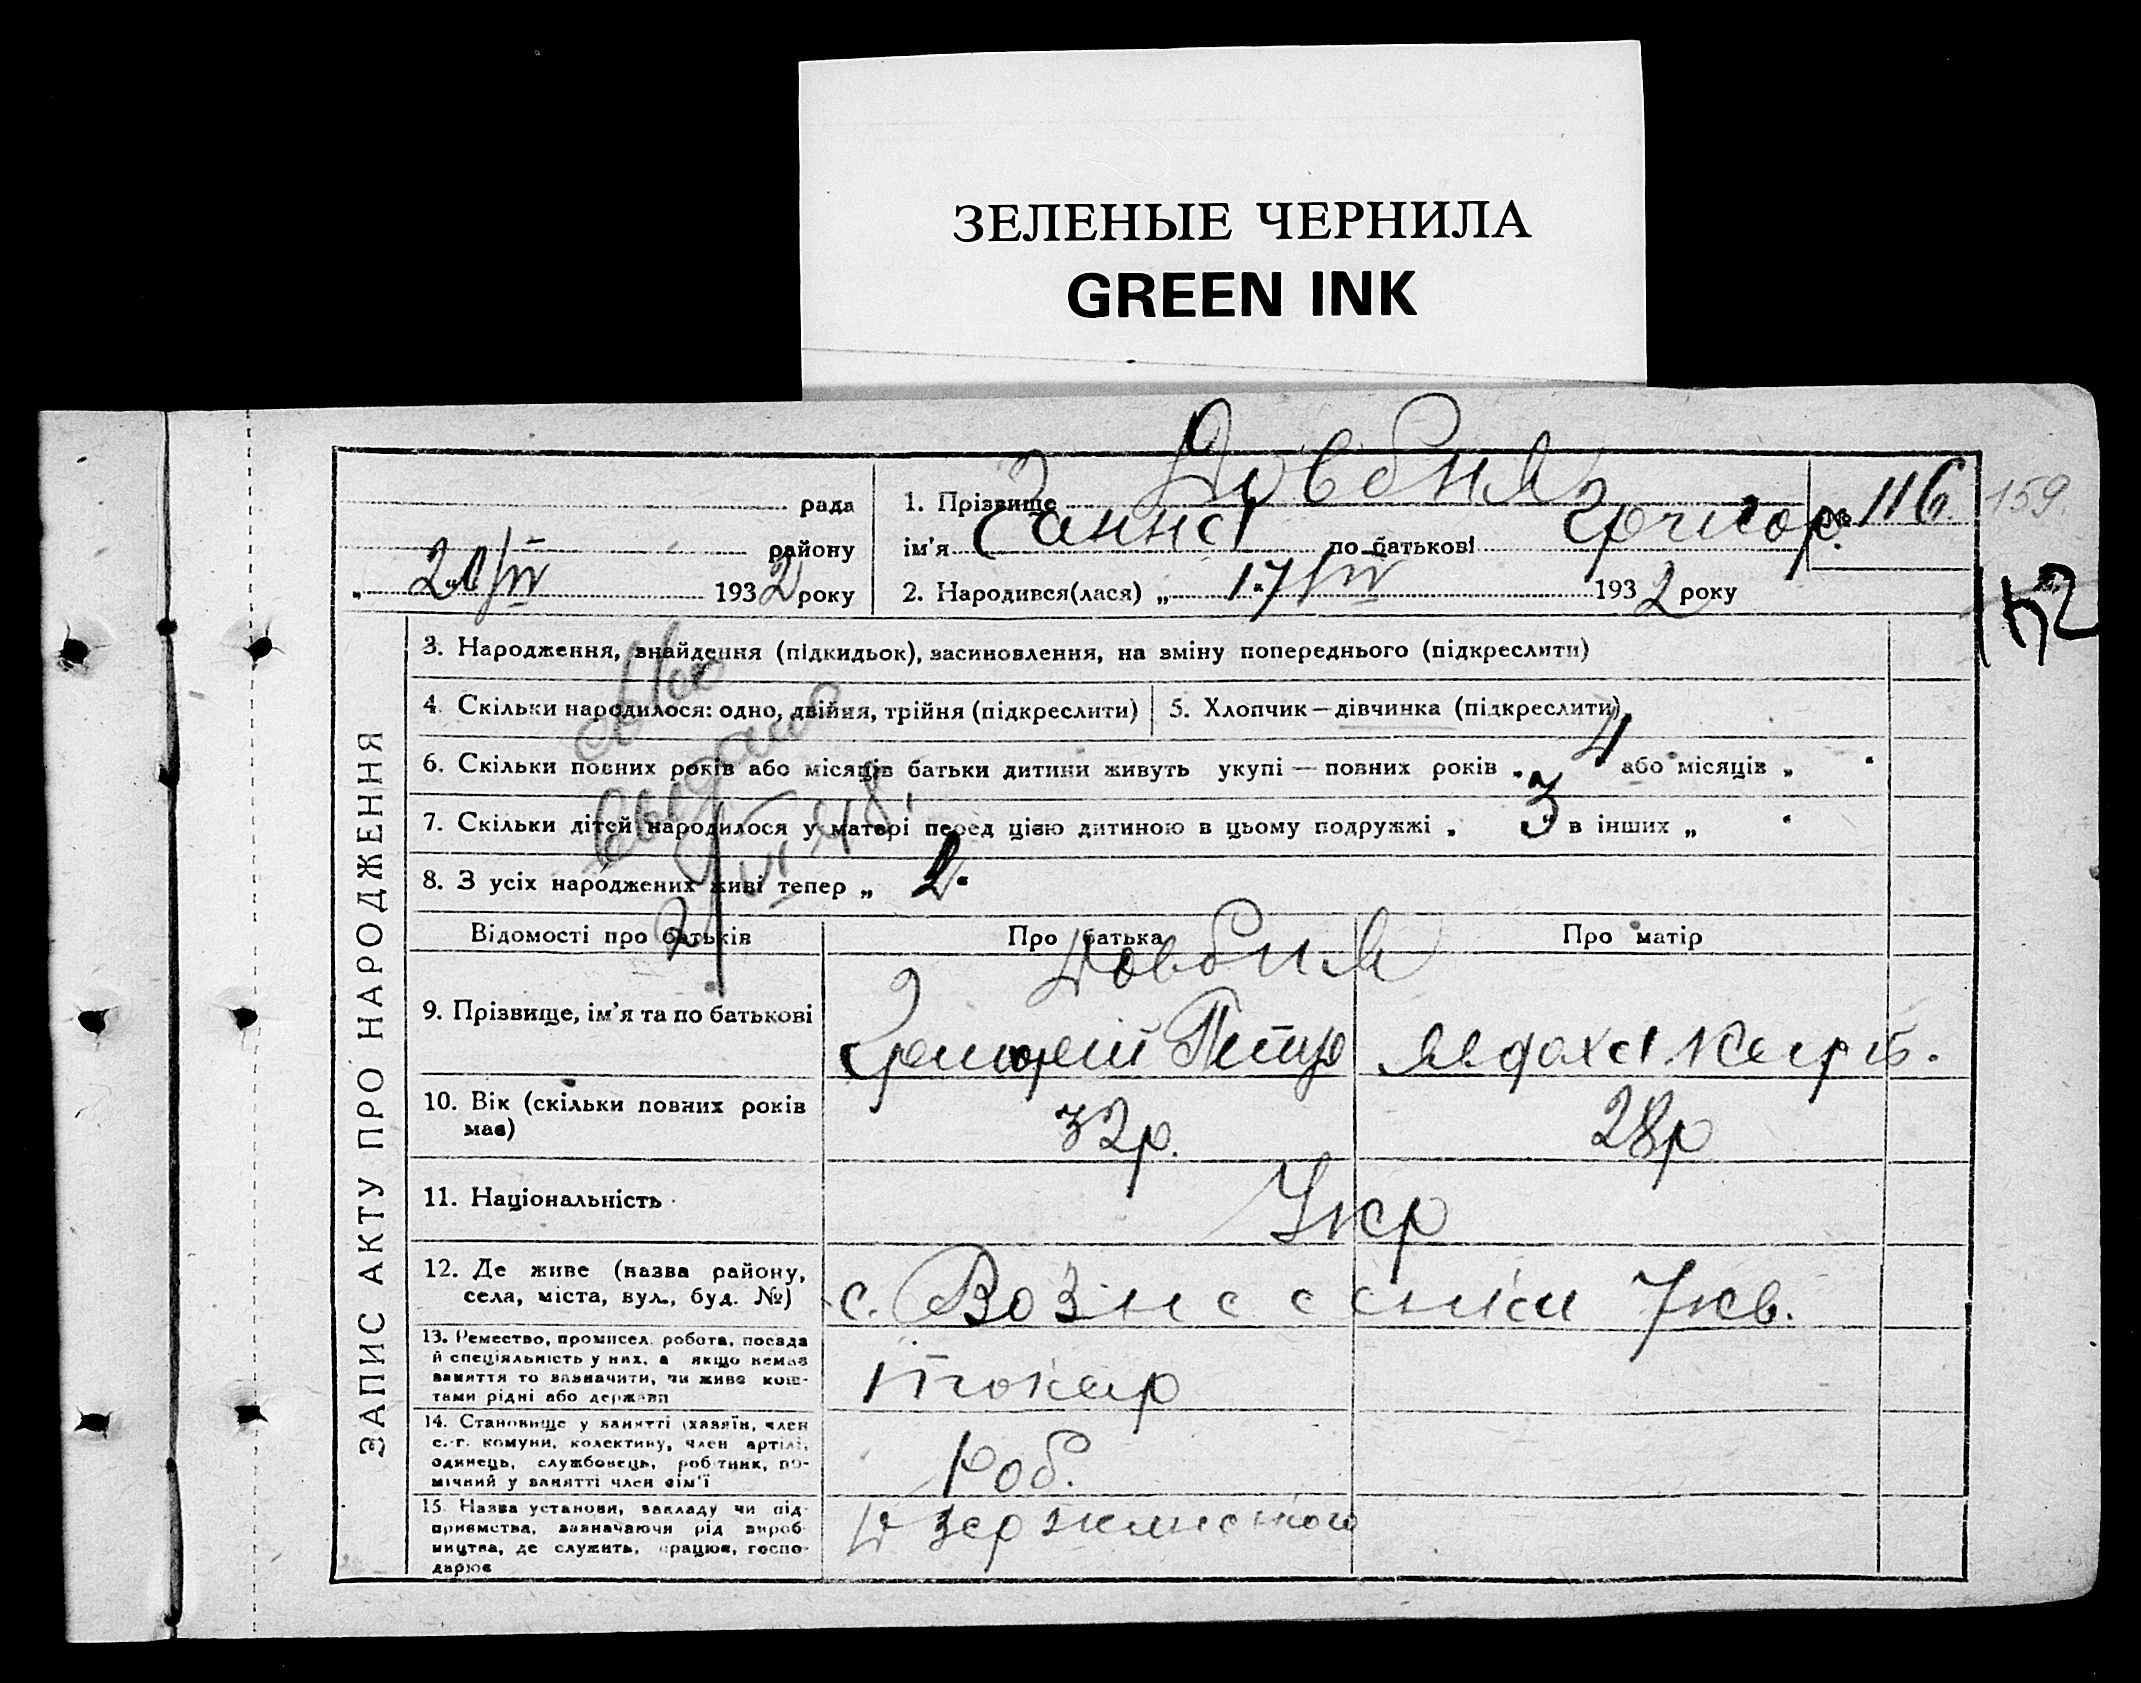 ЗЕЛЕНЫЕ ЧЕРНИЛА
GREEN INK
рада
району
20/IV 1932 року
1. Прізвище Довбиль
ім'я Ганна по батькові Григор.
2. Народився(лася) „ 17/IV 1932 року
№ 116.
159.
ЗАПИС АКТУ ПРО НАРОДЖЕННЯ
3. Народження, знайдення (підкидьок), засиновлення, на зміну попереднього (підкреслити)
4. Скільки народилося: одно, двійня, трійня (підкреслити)
5. Хлопчик — дівчинка (підкреслити)
6. Скільки повних років або місяців батьки дитини живуть укупі — повних років „ 4 або місяців „ "
7. Скільки дітей народилося у матері перед цією дитиною в цьому подружжі „ 3 " в інших „ "
8. З усіх народжених живі тепер „ 2 "
выдано
Відомості про батьків
Про батька
Про матір
9. Прізвище, ім'я та по батькові
Довбиль
Григорій Петр
Явдоха Карп.
10. Вік (скільки повних років має)
32р.
28р
11. Національність
Укр
12. Де живе (назва району, села, міста, вул., буд. №)
с. Вознесенки 7 кв.
13. Ремество, промисел, робота, посада й спеціяльність у них, а якщо немає заняття то зазначити, чи живе коштами рідні або держави
токар
14. Становище у занятті (хазяїн, член с.-г. комуни, колективу, член артілі, одинець, службовець, робітник, помічний у занятті член сім'ї
Роб.
15. Назва установи, закладу чи підприємства, зазначаючи рід виробництва, де служить, працює, господарює